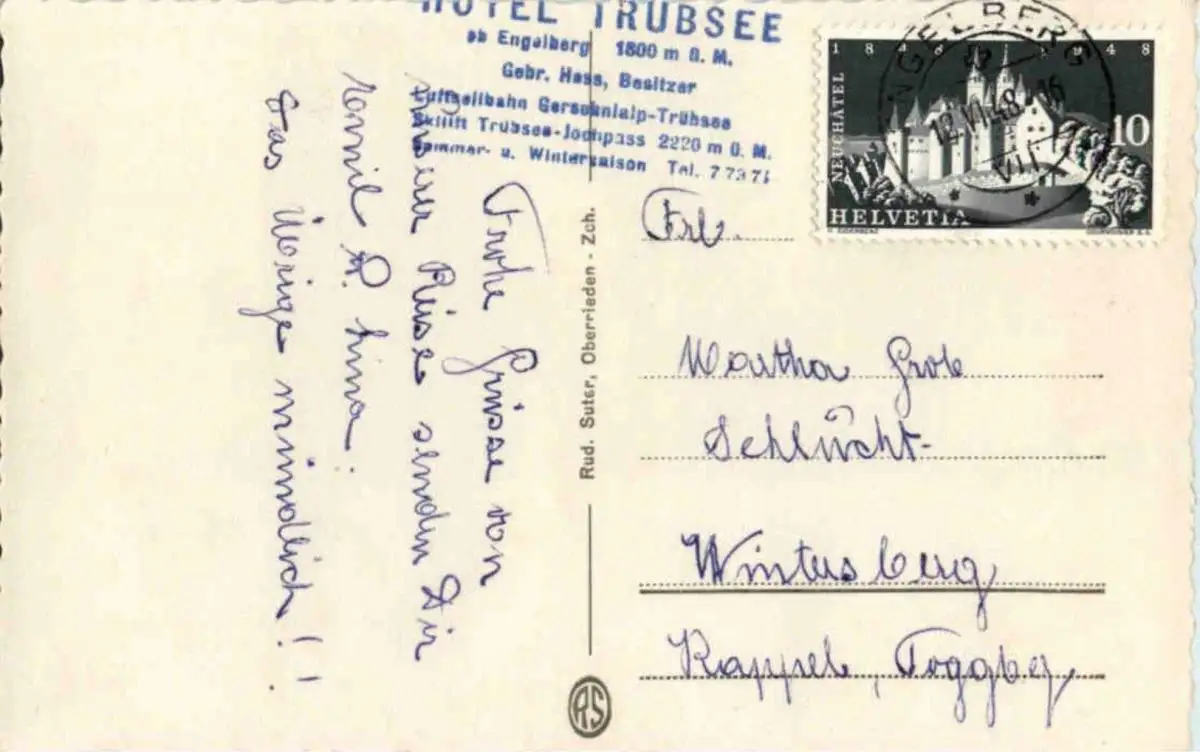 HOTEL TRÜBSEE
ob Engelberg 1800 m ü. M.
Gebr. Hess, Besitzer
Luftseilbahn Gerschnialp-Trübsee
Skilift Trübsee-Jochpass 2220 m ü. M.
Sommer- u. Wintersaison Tel. 77371
Frohe Grüsse von
unserer Reise senden Dir
das Übrige mündlich!!
Rud. Suter, Oberrieden - Zch.
RS
1848 1948
NEUCHÂTEL
10
HELVETIA
ENGELBERG
12.VII.48.-16
VII
Frl.
Martha Grob
Schlücht-
Wintersberg
Kappel, Toggbg